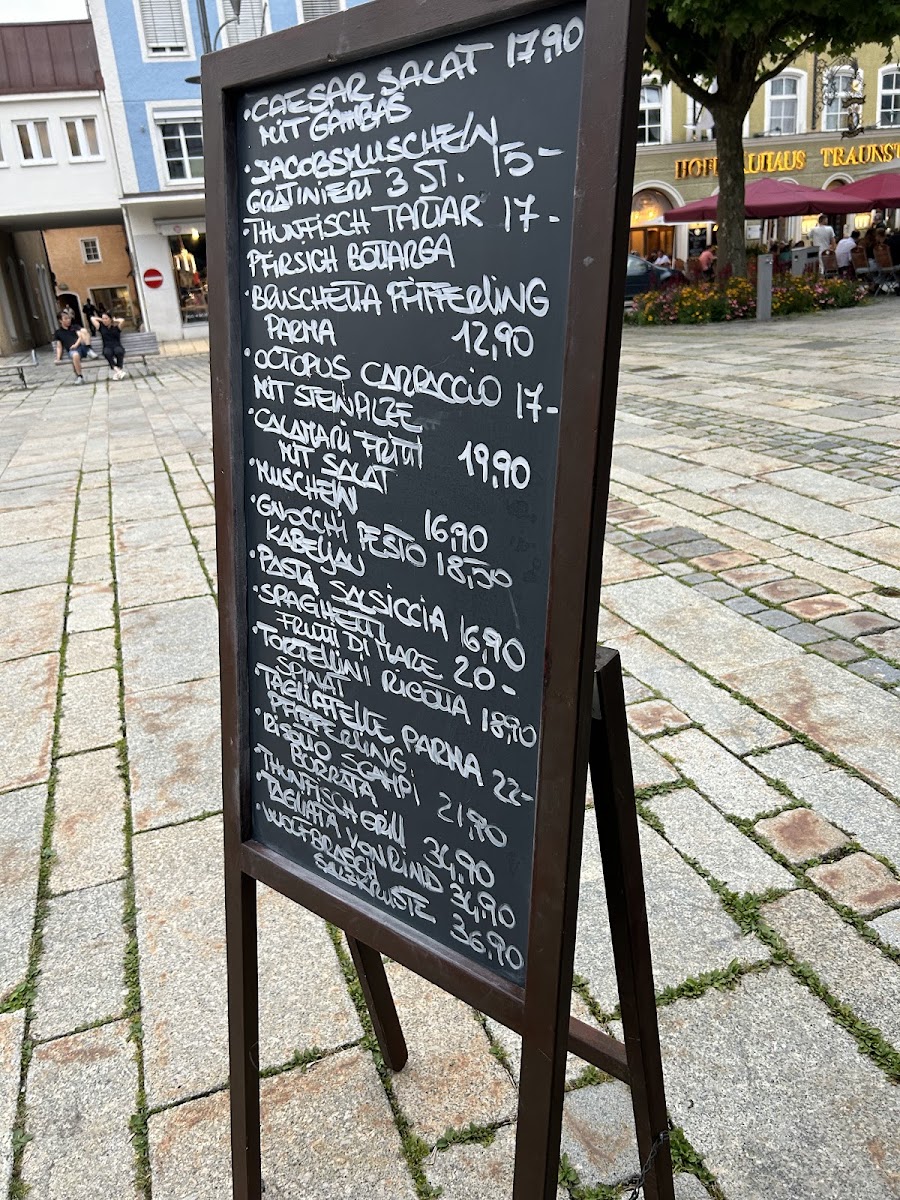 • CAESAR SALAT 17,90
MIT GAMBAS
• JACOBSMUSCHELN
GRATINIERT 3 ST. 15-
• THUNFISCH TARTAR 17-
PFIRSICH BOTTARGA
• BRUSCHETTA PFIFFERLING
PARMA 12,90
• OCTOPUS CARPACCIO 17-
MIT STEINPILZE
• CALAMARI FRITTI
MIT SALAT 19,90
• MUSCHELN 16,90
• GNOCCHI PESTO 18,50
KABELJAU
• PASTA SALSICCIA 16,90
• SPAGHETTI
FRUTTI DI MARE 20-
• TORTELLINI RICOTTA 18,90
SPINAT
• TAGLIATELLE PARMA 22-
PFIFFERLING
• RISOTTO SCAMPI
BURRATA 21,90
• THUNFISCH GRILL 34,90
• TAGLIATA VON RIND 34,90
• WOLFBRASCH
SALZKRUSTE 36,90
HOFBRÄUHAUS TRAUNST